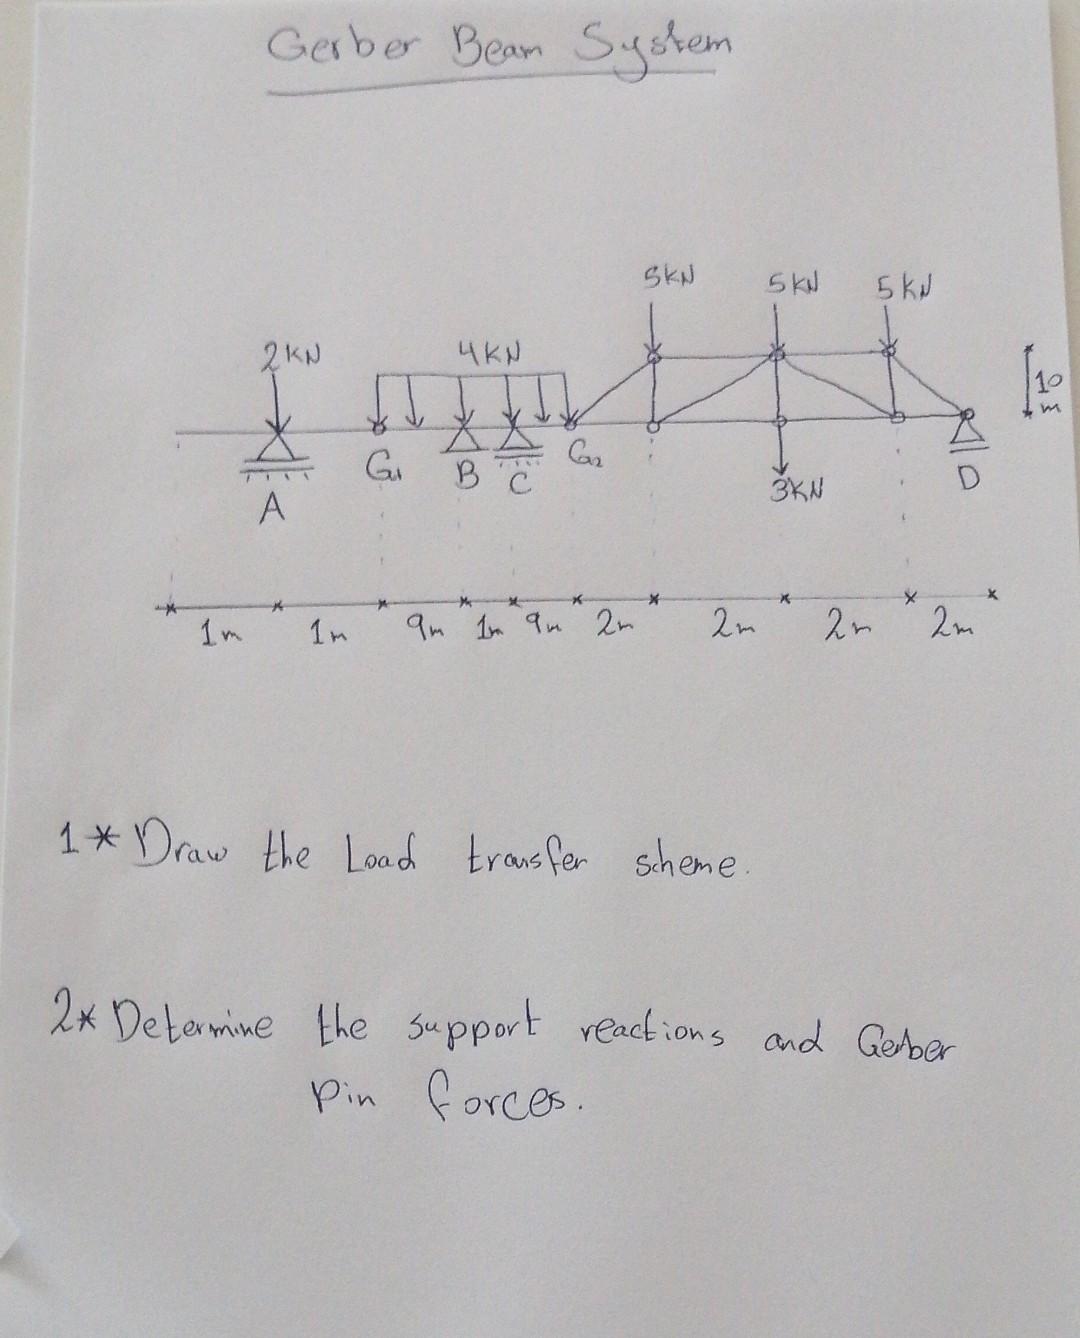 Gerber Beam System
5KN 5KN 5KN
2KN 4KN
10
m
G1 B C G2
3KN D
A
1m 1m 9m 1m 9m 2m 2m 2m 2m
1* Draw the Load transfer scheme.
2* Determine the support reactions and Gerber
Pin forces.